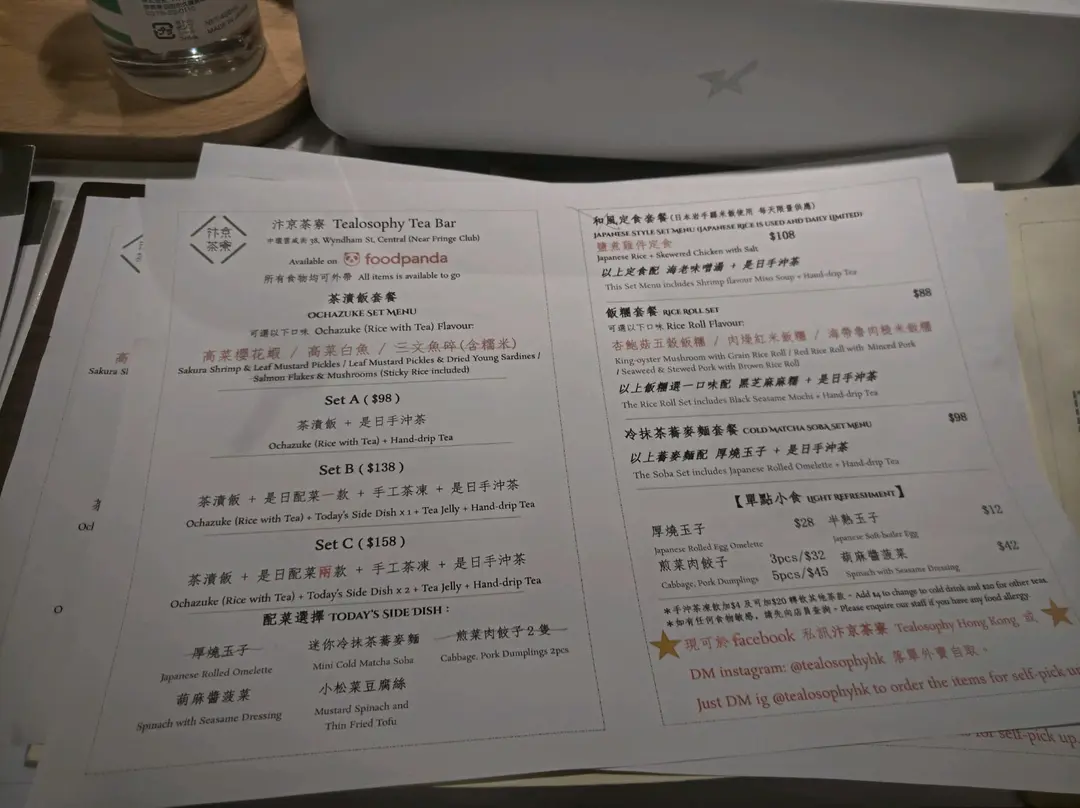 MADE IN JAPAN
汴京茶寮
汴京茶寮 Tealosophy Tea Bar
中環雲咸街 38, Wyndham St, Central (Near Fringe Club)
Available on foodpanda
所有食物均可外帶 All items is available to go
茶漬飯套餐
OCHAZUKE SET MENU
可選以下口味 Ochazuke (Rice with Tea) Flavour:
高菜櫻花蝦 / 高菜白魚 / 三文魚碎(含糯米)
Sakura Shrimp & Leaf Mustard Pickles / Leaf Mustard Pickles & Dried Young Sardines /
Salmon Flakes & Mushrooms (Sticky Rice included)
Set A ( $98 )
茶漬飯 + 是日手沖茶
Ochazuke (Rice with Tea) + Hand-drip Tea
Set B ( $138 )
茶漬飯 + 是日配菜一款 + 手工茶凍 + 是日手沖茶
Ochazuke (Rice with Tea) + Today's Side Dish x 1 + Tea Jelly + Hand-drip Tea
Set C ( $158 )
茶漬飯 + 是日配菜兩款 + 手工茶凍 + 是日手沖茶
Ochazuke (Rice with Tea) + Today's Side Dish x 2 + Tea Jelly + Hand-drip Tea
配菜選擇 TODAY'S SIDE DISH :
厚燒玉子
Japanese Rolled Omelette
迷你冷抹茶蕎麥麵
Mini Cold Matcha Soba
煎菜肉餃子2隻
Cabbage, Pork Dumplings 2pcs
萌麻醬菠菜
Spinach with Seasame Dressing
小松菜豆腐絲
Mustard Spinach and
Thin Fried Tofu
和風定食套餐 (日本岩手縣米飯使用 每天限量供應)
JAPANESE STYLE SET MENU (JAPANESE RICE IS USED AND DAILY LIMITED)
鹽煮雞件定食 $108
Japanese Rice + Skewered Chicken with Salt
以上定食配 海老味噌湯 + 是日手沖茶
This Set Menu includes Shrimp flavour Miso Soup + Hand-drip Tea
飯糰套餐 RICE ROLL SET $88
可選以下口味 Rice Roll Flavour:
杏鮑菇五穀飯糰 / 肉燥紅米飯糰 / 海帶魯肉糙米飯糰
King-oyster Mushroom with Grain Rice Roll / Red Rice Roll with Minced Pork
/ Seaweed & Stewed Pork with Brown Rice Roll
以上飯糰選一口味配 黑芝麻麻糬 + 是日手沖茶
The Rice Roll Set includes Black Seasame Mochi + Hand-drip Tea
冷抹茶蕎麥麵套餐 COLD MATCHA SOBA SET MENU $98
以上蕎麥麵配 厚燒玉子 + 是日手沖茶
The Soba Set includes Japanese Rolled Omelette + Hand-drip Tea
【單點小食 LIGHT REFRESHMENT】
厚燒玉子 $28
Japanese Rolled Egg Omelette
半熟玉子 $12
Japanese Soft-boiler Egg
煎菜肉餃子 3pcs/$32
Cabbage, Pork Dumplings 5pcs/$45
萌麻醬菠菜 $42
Spinach with Seasame Dressing
*手沖茶凍飲加$4 及可加$20 轉飲其他茶款。Add $4 to change to cold drink and $20 for other teas.
*如有任何食物敏感，請先向店員查詢。Please enquire our staff if you have any food allergy.
現可於 facebook 私訊汴京茶寮 Tealosophy Hong Kong, 或
DM instagram: @tealosophyhk 落單外賣自取。
Just DM ig @tealosophyhk to order the items for self-pick u
高
Sakura Sl
Ocl
O
for self-pick up.